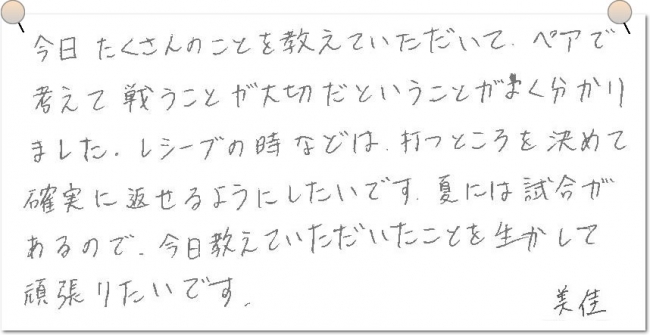 今日たくさんのことを教えていただいて、ペアで
考えて戦うことが大切だということがよく分かり
ました。レシーブの時などは、打つところを決めて
確実に返せるようにしたいです。夏には試合が
あるので、今日教えていただいたことを生かして
頑張りたいです。
美佳